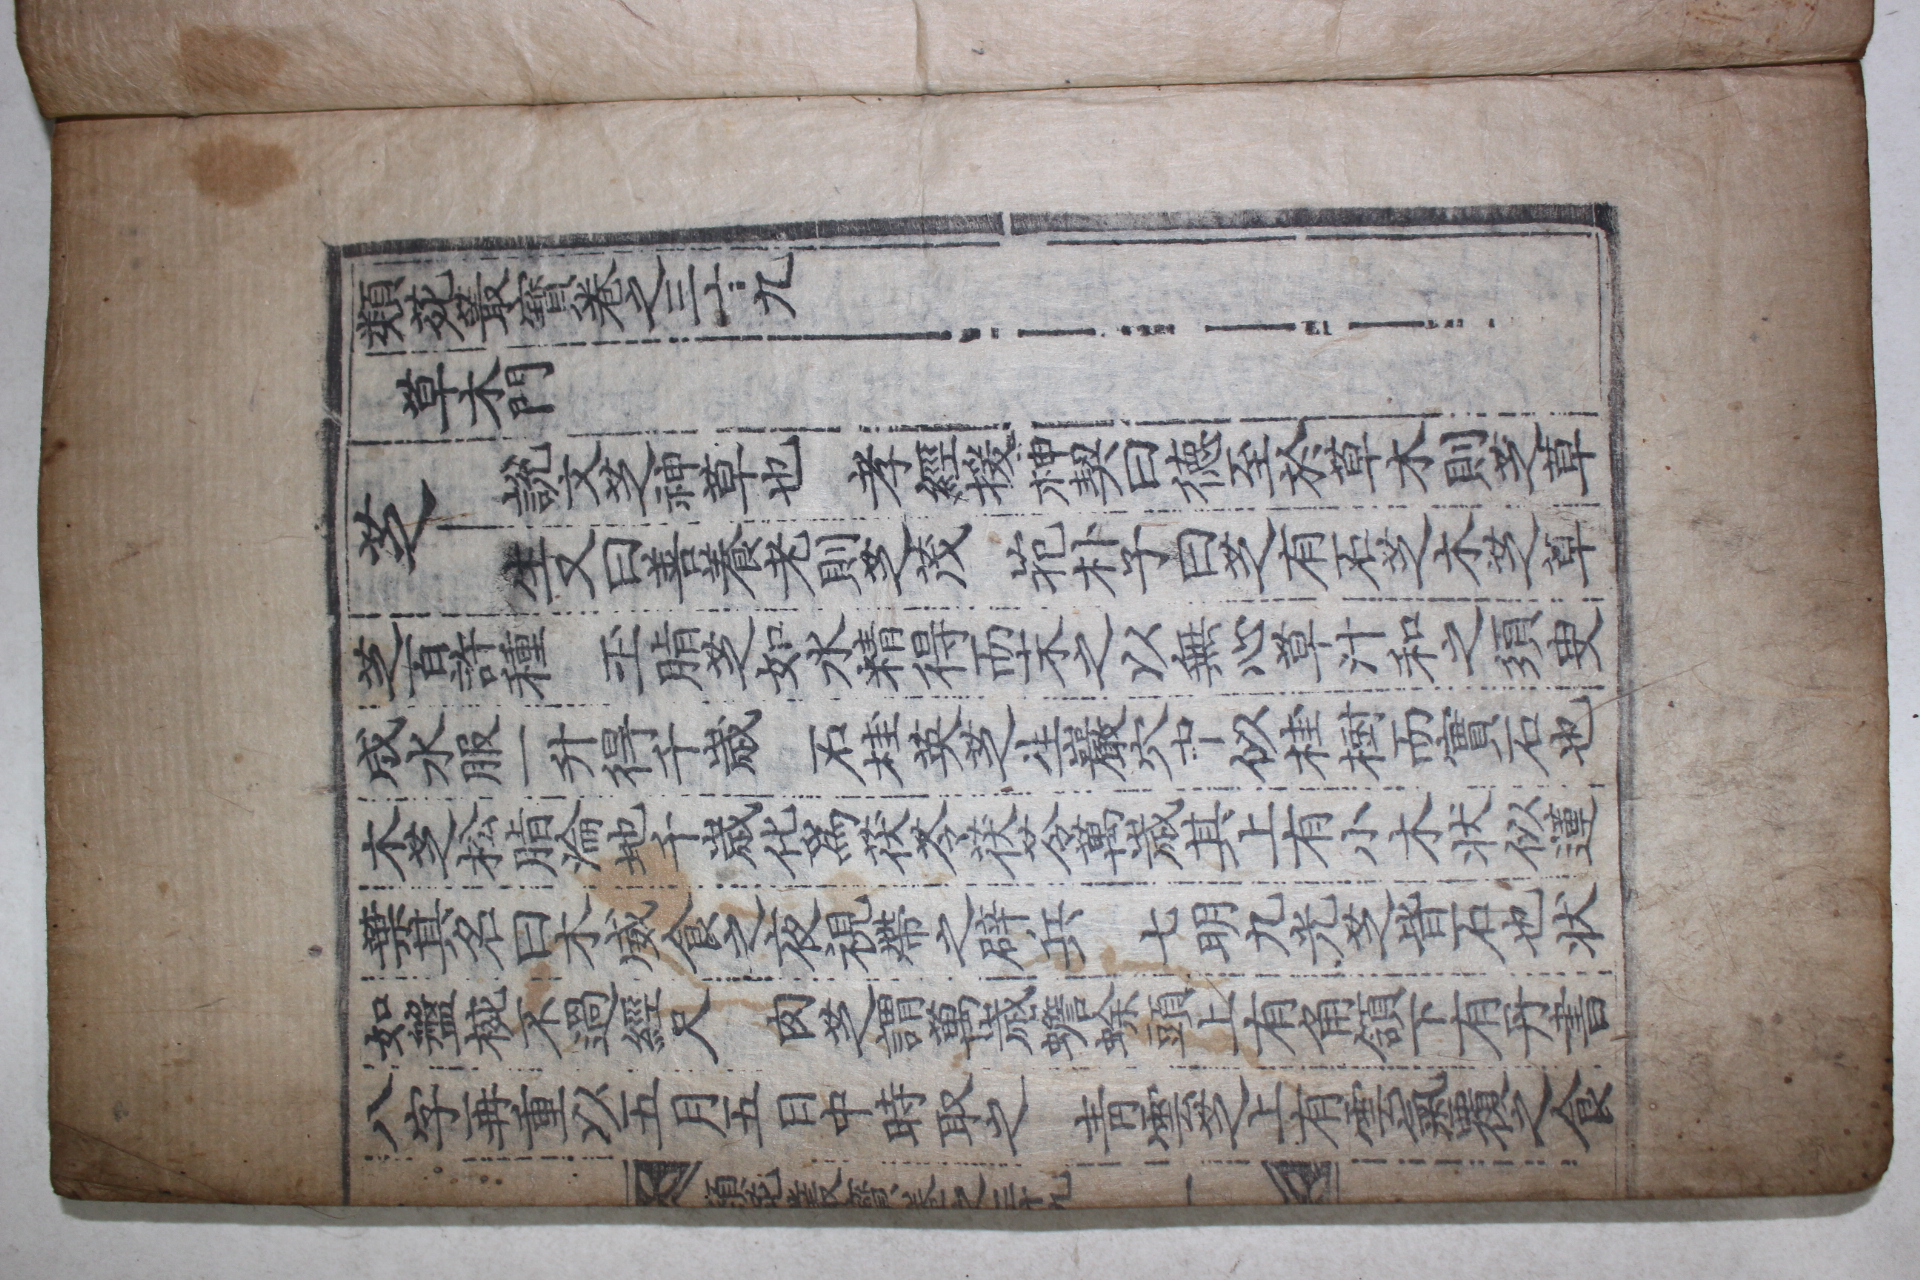 類說叢寶卷之三十九
草木門
芝 說文芝神草也 孝經援神契曰德至於草木則芝草
生又曰善養老則芝茂 抱朴子曰芝有石芝木芝草
芝百許種 玉脂芝如水精得而末之以無心草汁和之須臾
成水服一升得千歲 石桂英芝生巖穴中似桂樹而實石也
木芝松脂淪地千歲化爲茯苓茯苓萬歲其上有小木狀似蓮
華其名曰木威食之夜視帶之辟兵 七明九光芝皆石也狀
如盤椀不過經尺 肉芝謂萬歲蟾蜍頭上有角頷下有丹書
八字再重以五月五日中時取之 靑雲芝上有雲氣覆之食
類說叢寶卷之三十九 一